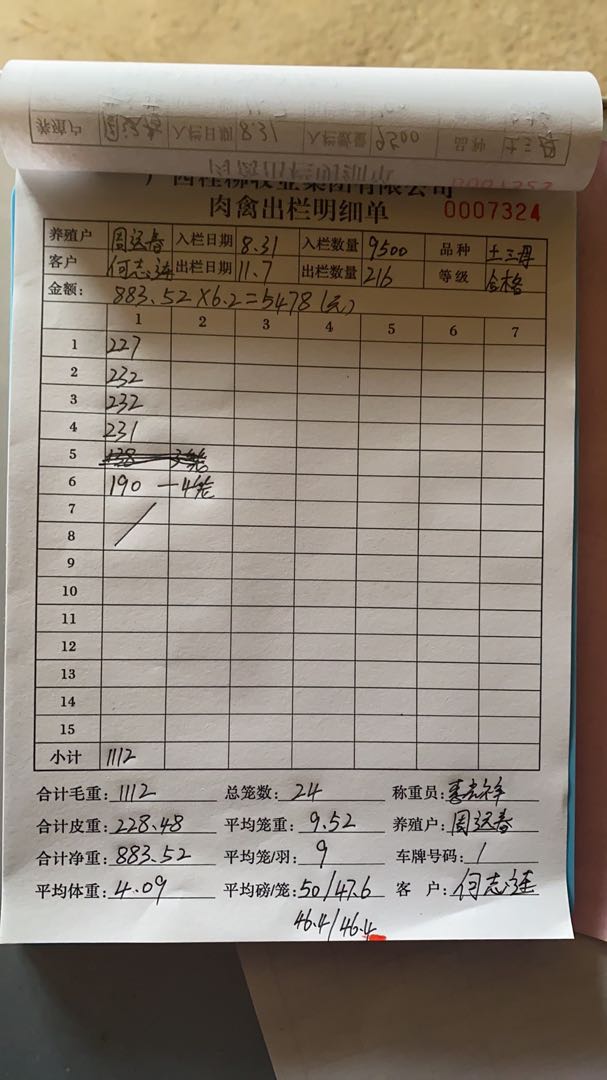 养殖户 周运春 入栏日期 8.31 入栏数量 9500 品种 土三母
广西桂柳牧业集团有限公司
肉禽出栏明细单 0007324
养殖户 周运春 入栏日期 8.31 入栏数量 9500 品种 土三母
客户 何志连 出栏日期 11.7 出栏数量 216 等级 合格
金额: 883.52×6.2=5478(元)
1 2 3 4 5 6 7
1 227
2 232
3 232
4 231
5
6 190 —4笼
7
8
9
10
11
12
13
14
15
小计 1112
合计毛重: 1112 总笼数: 24 称重员:
合计皮重: 228.48 平均笼重: 9.52 养殖户: 周运春
合计净重: 883.52 平均笼/羽: 9 车牌号码: /
平均体重: 4.09 平均磅/笼: 50/47.6 客 户: 何志连
46.4/46.4